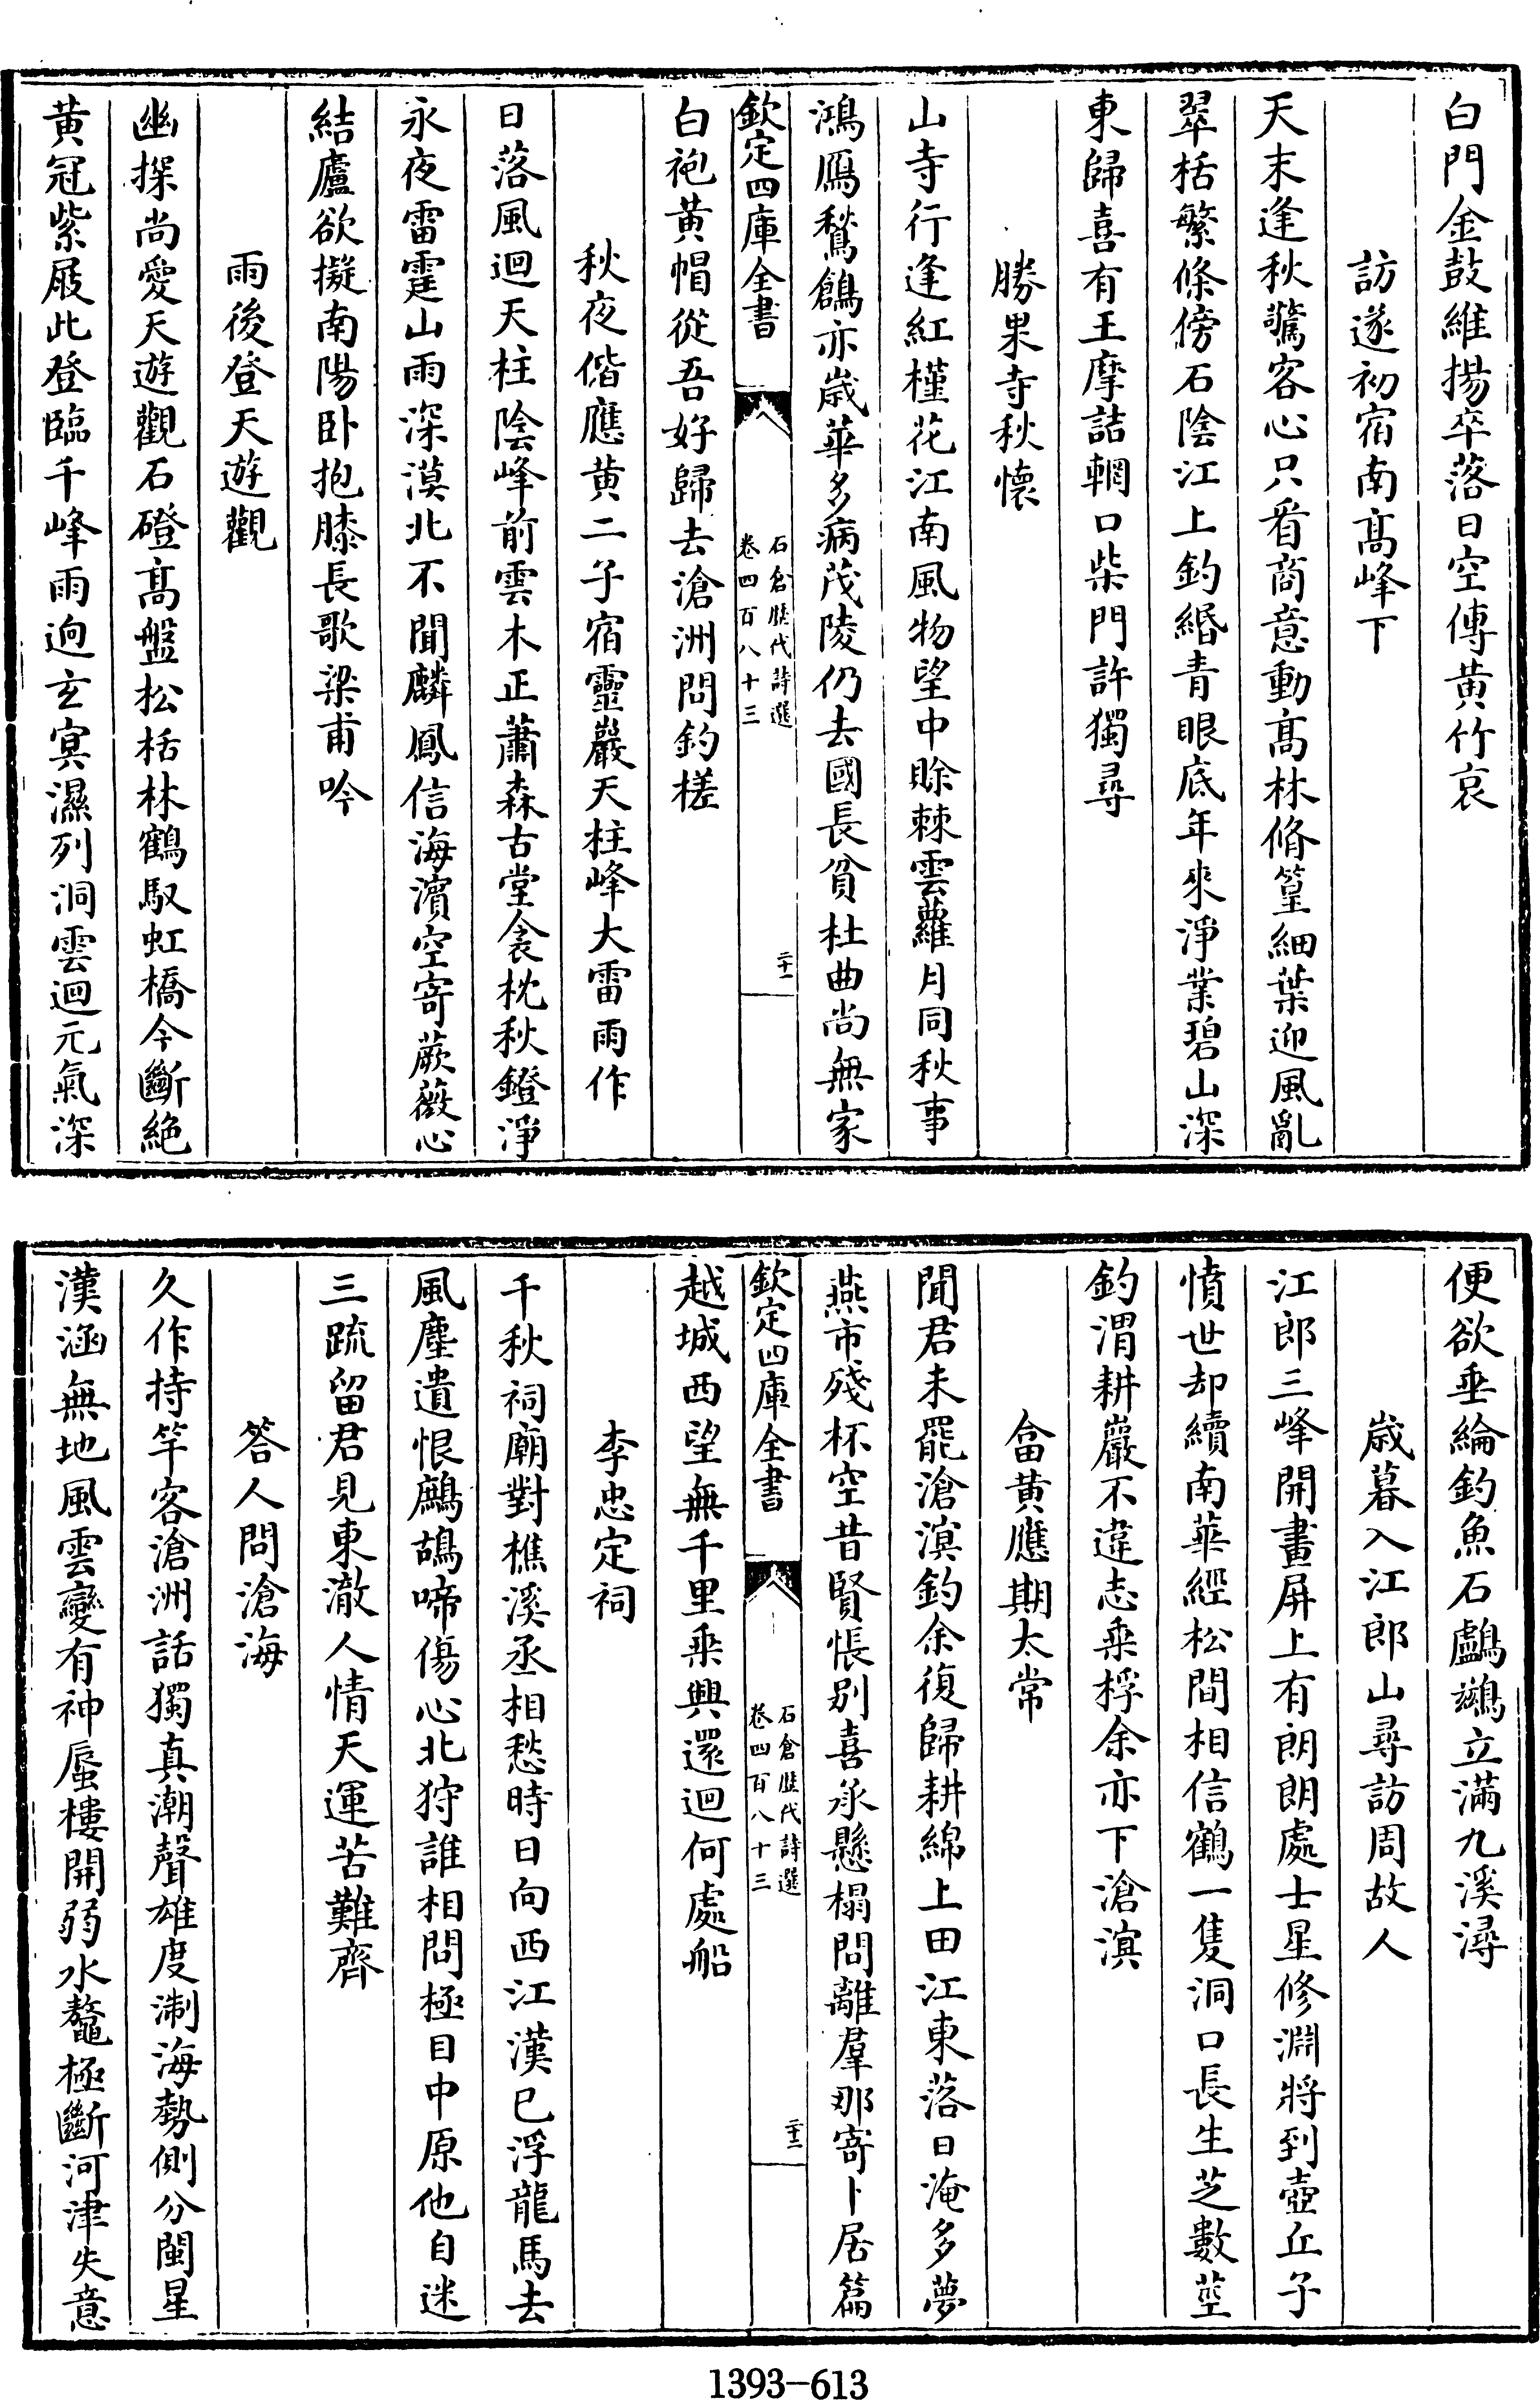 白門金鼓維揚卒落日空傳黄竹哀
訪遂初宿南髙峰下
天末逢秋驚客心只看商意動髙林脩篁細葉迎風亂
翠栝繁條傍石陰江上釣緡青眼底年來淨業碧山深
東歸喜有王摩詰輞口柴門許獨尋
勝果寺秋懷
山寺行逢紅槿花江南風物望中賒棘雲蘿月同秋事
鴻鴈鶖鶬亦歳華多病茂陵仍去國長貧杜曲尚無家
欽定四庫全書
石倉歴代詩選
卷四百八十三
二十一
白袍黄帽從吾好歸去滄洲問釣槎
秋夜偕應黄二子宿靈巖天柱峰大雷雨作
日落風迴天柱陰峰前雲木正蕭森古堂衾枕秋鐙淨
永夜雷霆山雨深漠北不聞麟鳳信海濵空寄蕨薇心
結廬欲擬南陽卧抱膝長歌梁甫吟
雨後登天遊觀
幽探尚愛天遊觀石磴髙盤松栝林鶴馭虹橋今斷絶
黄冠紫屐此登臨千峰雨逈玄㝠濕列洞雲迴元氣深
便欲垂綸釣魚石鸕鷀立滿九溪潯
歳暮入江郎山尋訪周故人
江郎三峰開畫屏上有朗朗處士星修淵將到壺丘子
憤世却續南華經松間相信鶴一隻洞口長生芝數莖
釣渭耕巖不違志乗桴余亦下滄溟
畣黄應期太常
聞君未罷滄溟釣余復歸耕綿上田江東落日淹多夢
燕市殘杯空昔賢悵别喜承懸榻問離羣那寄卜居篇
欽定四庫全書
石倉歴代詩選
卷四百八十三
二十二
越城西望無千里乗興還迴何處船
李忠定祠
千秋祠廟對樵溪丞相愁時日向西江漢已浮龍馬去
風塵遺恨鷓鴣啼傷心北狩誰相問極目中原他自迷
三疏留君見東澈人情天運苦難齊
答人問滄海
久作持竿客滄洲話獨真潮聲雄度淛海勢側分閩星
漢涵無地風雲變有神蜃樓開弱水鼇極斷河津失意
1393-613